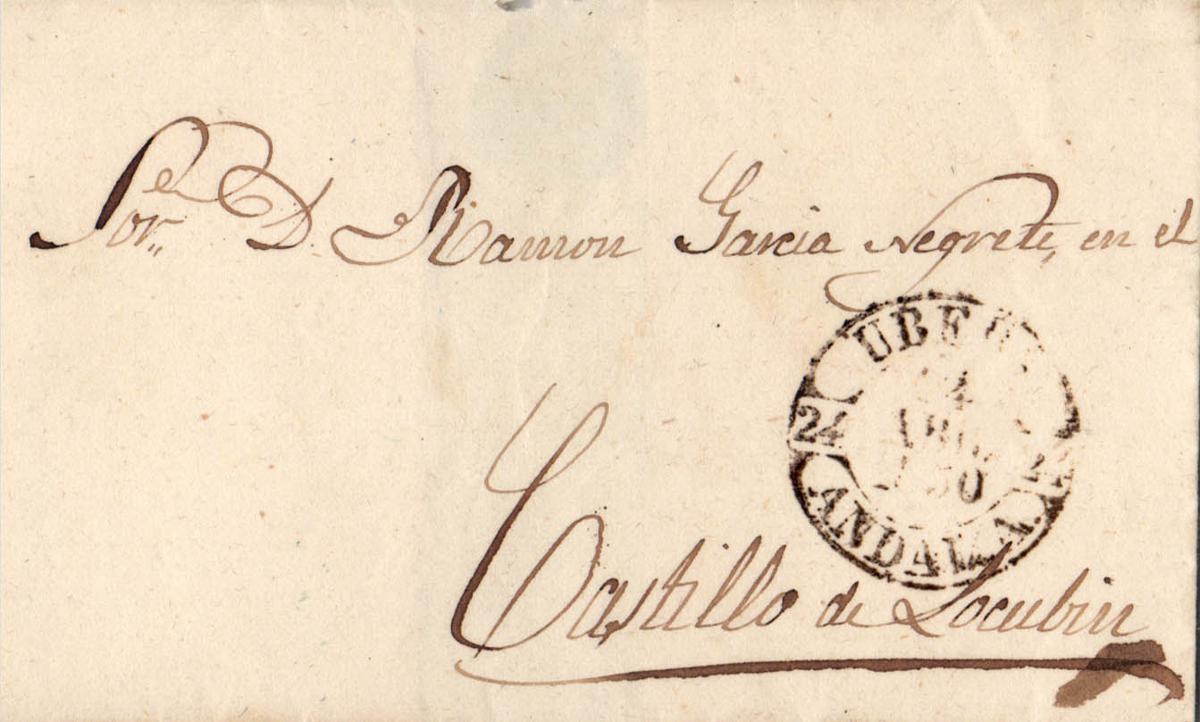 Sor. D. Ramon Garcia Negrete, en el
UBED
24
50
ANDAL.A
Castillo de Locubin